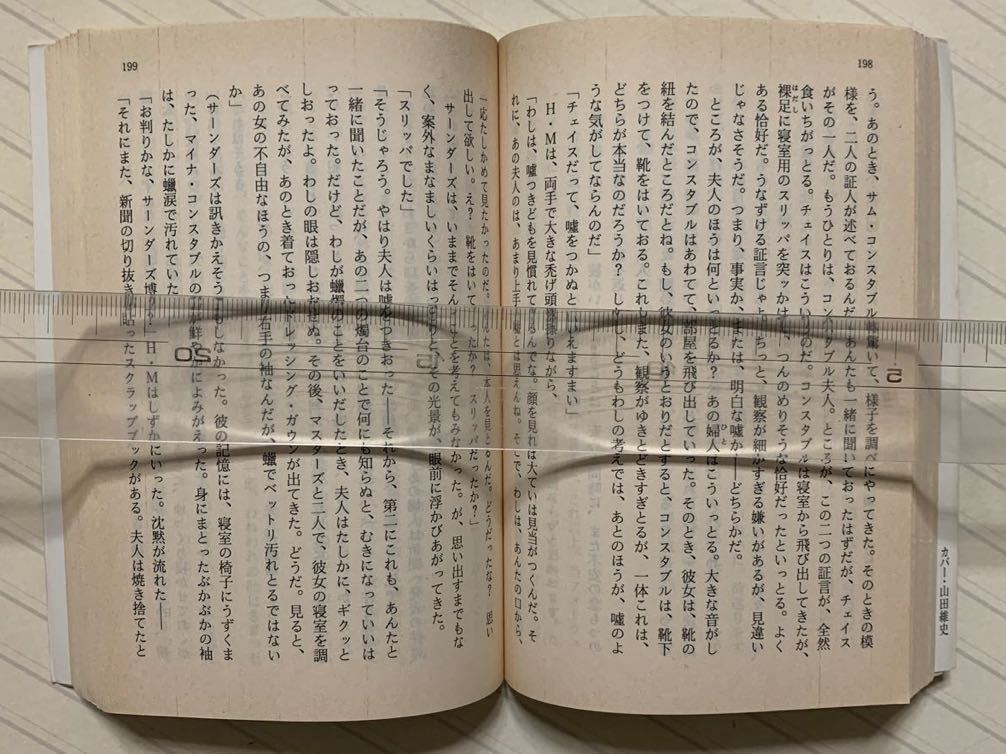 198
う。あのとき、サム・コンスタブルが驚いて、様子を調べにやってきた。そのときの模
様を、二人の証人が述べておるんだ。あんたも一緒に聞いておったはずだが、チェイス
がその一人だ。もうひとりは、コンスタブル夫人。ところが、この二つの証言が、全然
食いちがっとる。チェイスはこういうのだ。コンスタブルは寝室から飛び出してきたが、
裸足に寝室用のスリッパを突っかけ、つんのめりそうな恰好だったといっとる。よく
はだし
ある恰好だ。うなずける証言じゃよ。ちっと、観察が細かすぎる嫌いがあるが、見違い
じゃなさそうだ。つまり、事実か、または、明白な嘘か――どちらかだ。
ところが、夫人のほうは何といっとるか？ あの婦人はこういっとる。大きな音がし
ひと
たので、コンスタブルはあわてて、部屋を飛び出していった。そのとき、彼女は、靴の
紐を結んだところだとね。もし、彼女のいうとおりだとすると、コンスタブルは、靴下
をつけて、靴をはいておる。これもまた、観察がゆきとどきすぎとるが、一体これは、
どちらが本当なのだろうか？ しかし、どうもわしの考えでは、あとのほうが、嘘のよ
うな気がしてならんのだ」
「チェイスだって、嘘をつかぬとはいえますまい」
H・Mは、両手で大きな禿げ頭を撫でりながら、
「わしは、嘘つきどもを見慣れてきるんでな。顔を見れば大ていは見当がつくんだ。そ
れに、あの夫人のは、あまり上手な嘘とは思えんね。そこで、わしは、あんたの口から、
199
一応たしかめて見たかったのだ。あんたは、本人を見とるんだ。どうだったな？ 思い
出して欲しい。え？ 靴をはいていたか？ スリッパだったか？」
サーンダーズは、いままでそんなことを考えてもみなかった。が、思い出すまでもな
く、案外なまなましいくらいはっきりと、その光景が、眼前に浮かびあがってきた。
「スリッパでした」
「そうじゃろう。やはり夫人は嘘をつきおった――それから、第二にこれも、あんたと
一緒に聞いたことだが、あの二つの燭台のことで何にも知らぬと、むきになっていいは
っておった。だけど、わしが蠟燭のことをいいだしたとき、夫人はたしかに、ギクッと
しおったよ。わしの眼は隠しおおせぬ。その後、マスターズと二人で、彼女の寝室を調
べてみたが、あのとき着ておったドレッシング・ガウンが出てきた。どうだ。見ると、
あの女の不自由なほうの、つまり右手の袖なんだが、蠟でベットリ汚れとるではない
か」
（サーンダーズは訊きかえそうともしなかった。彼の記憶には、寝室の椅子にうずくま
った、マイナ・コンスタブルの姿が鮮やかによみがえった。身にまとったぶかぶかの袖
は、たしかに蠟涙で汚れていた）
「お判りかな、サーンダーズ博士？」H・Mはしずかにいった。沈黙が流れた――
「それにまた、新聞の切り抜きを貼ったスクラップブックがある。夫人は焼き捨てたと
カバー・山田維史
15
20